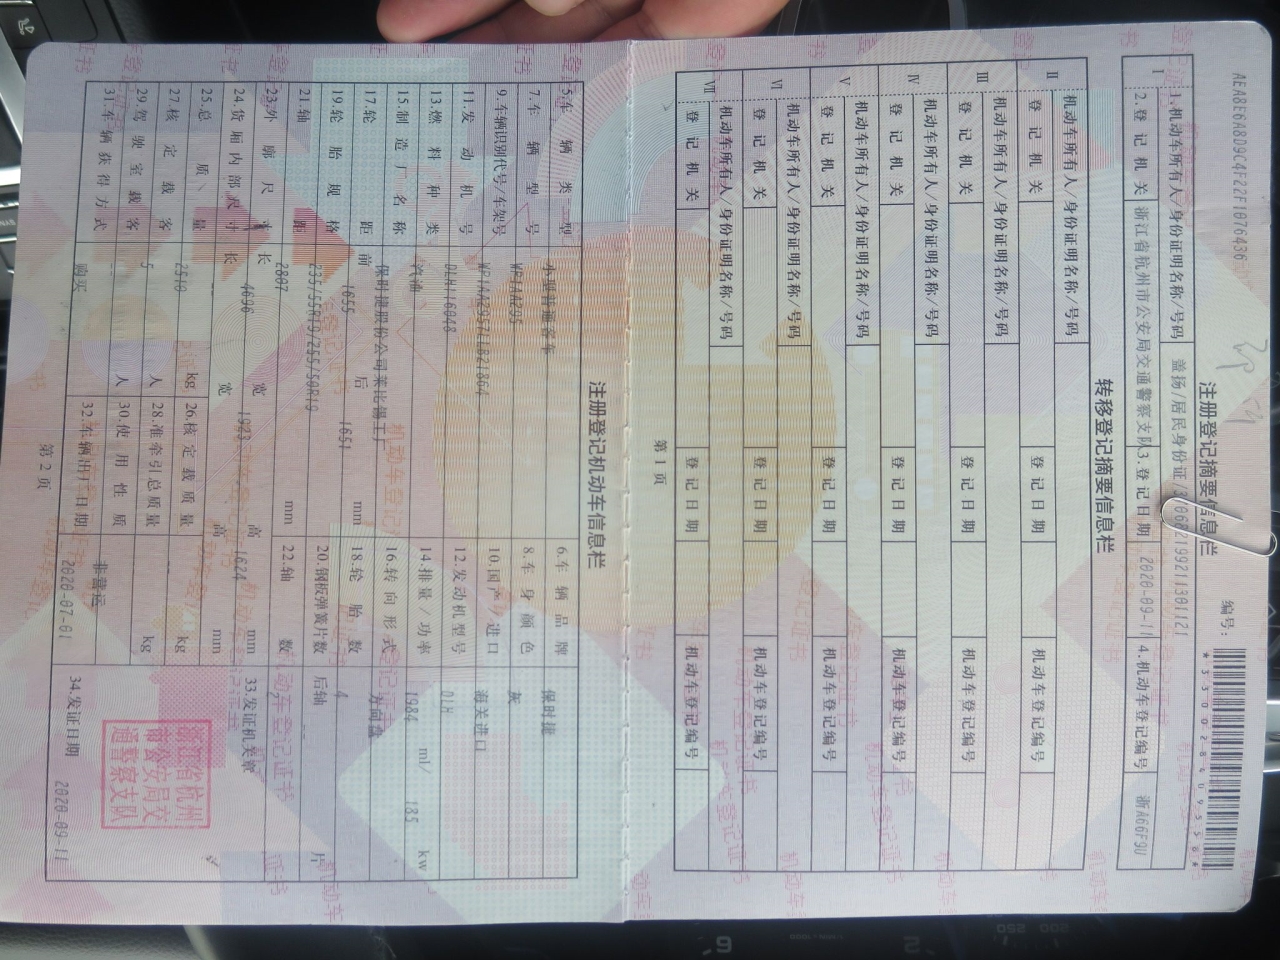 AEA8E6A8D9C4F22F1076436
编号:
*330028409556*
注册登记摘要信息栏
I 1.机动车所有人/身份证明名称/号码 盖扬/居民身份证/
2.登记机关 浙江省杭州市公安局交通警察支队 3.登记日期 2020-09-11 4.机动车登记编号 浙A66F9U
转移登记摘要信息栏
II 机动车所有人/身份证明名称/号码
登记机关 登记日期 机动车登记编号
III 机动车所有人/身份证明名称/号码
登记机关 登记日期 机动车登记编号
IV 机动车所有人/身份证明名称/号码
登记机关 登记日期 机动车登记编号
V 机动车所有人/身份证明名称/号码
登记机关 登记日期 机动车登记编号
VI 机动车所有人/身份证明名称/号码
登记机关 登记日期 机动车登记编号
VII 机动车所有人/身份证明名称/号码
登记机关 登记日期 机动车登记编号
第1页
注册登记机动车信息栏
5.车辆类型 小型普通客车 6.车辆品牌 保时捷
7.车辆型号 WP1AA295 8.车身颜色 灰
9.车辆识别代号/车架号 WP1AA2957LLB21864 10.国产/进口 海关进口
11.发动机号 DLH 16048 12.发动机型号 DLH
13.燃料种类 汽油 14.排量/功率 1984 ml/ 185 kw
15.制造厂名称 保时捷股份公司莱比锡工厂 16.转向形式 方向盘
17.轮距 前 1655 后 1651 mm 18.轮胎数 4
19.轮胎规格 235/55R19/255/50R19 20.钢板弹簧片数 后轴 -- 片
21.轴距 2807 mm 22.轴数
23.外廓尺寸 长 4696 宽 1923 高 1624 mm 33.发证机关章
24.货厢内部尺寸 长 -- 宽 高 mm
浙江省杭州市公安局交通警察支队
25.总质量 2510 kg 26.核定载质量 -- kg
27.核定载客 5 人 28.准牵引总质量 kg
29.驾驶室载客 -- 人 30.使用性质 非营运
31.车辆获得方式 购买 32.车辆出厂日期 2020-07-01 34.发证日期 2020-09-11
第2页